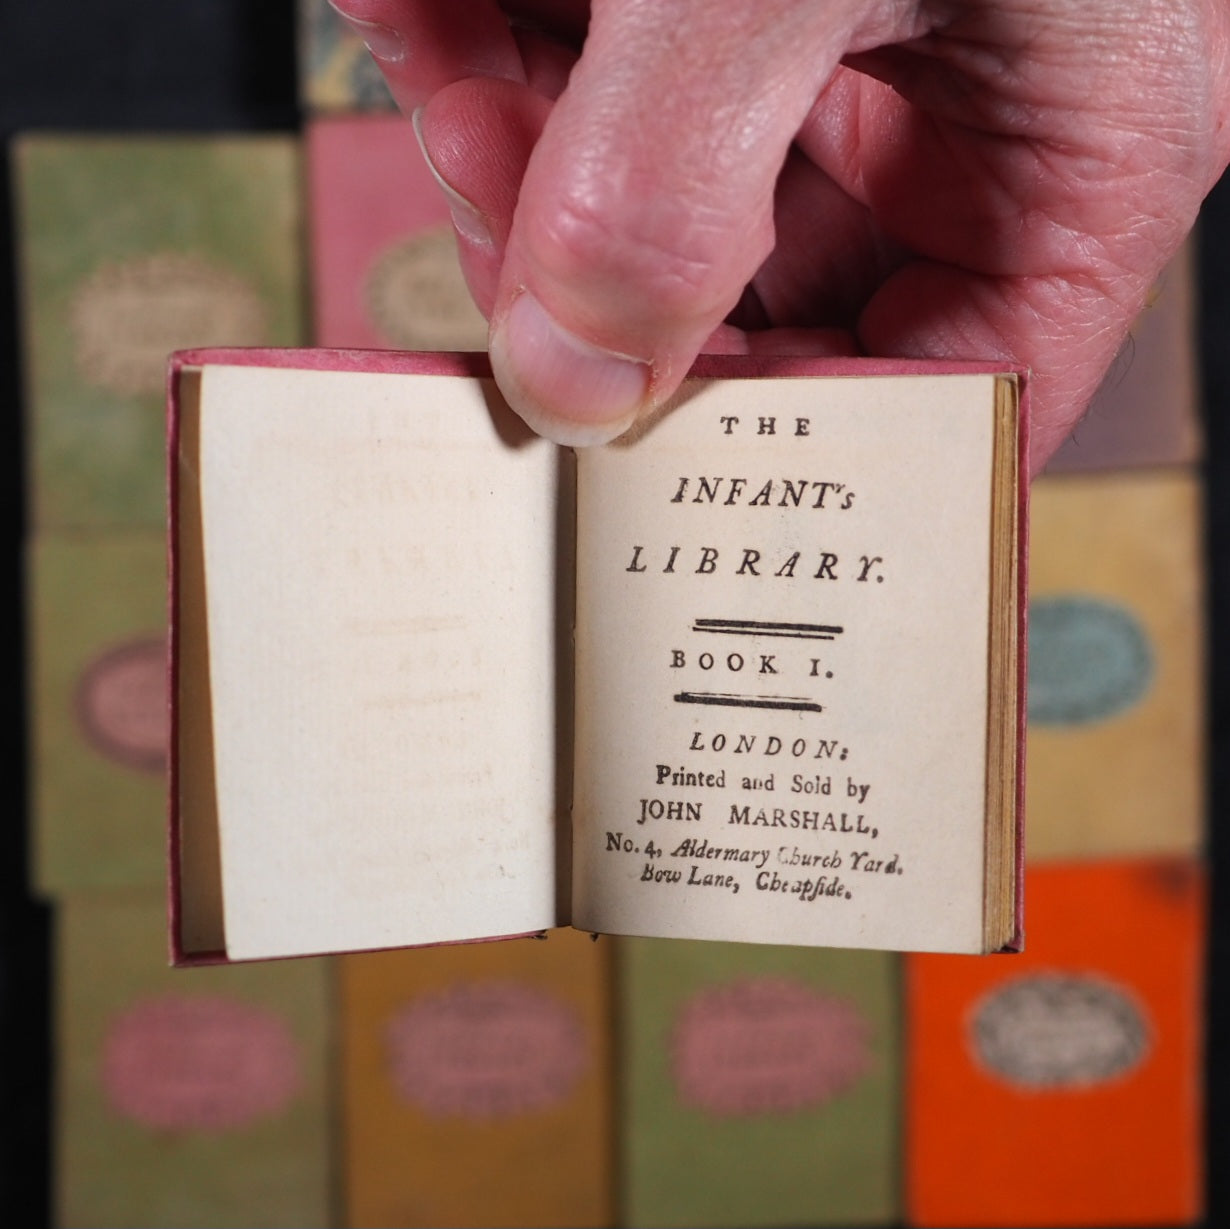 THE
INFANT's
LIBRARY.
BOOK I.
LONDON:
Printed and Sold by
JOHN MARSHALL,
No. 4, Aldermary Church Yard.
Bow Lane, Cheapſide.